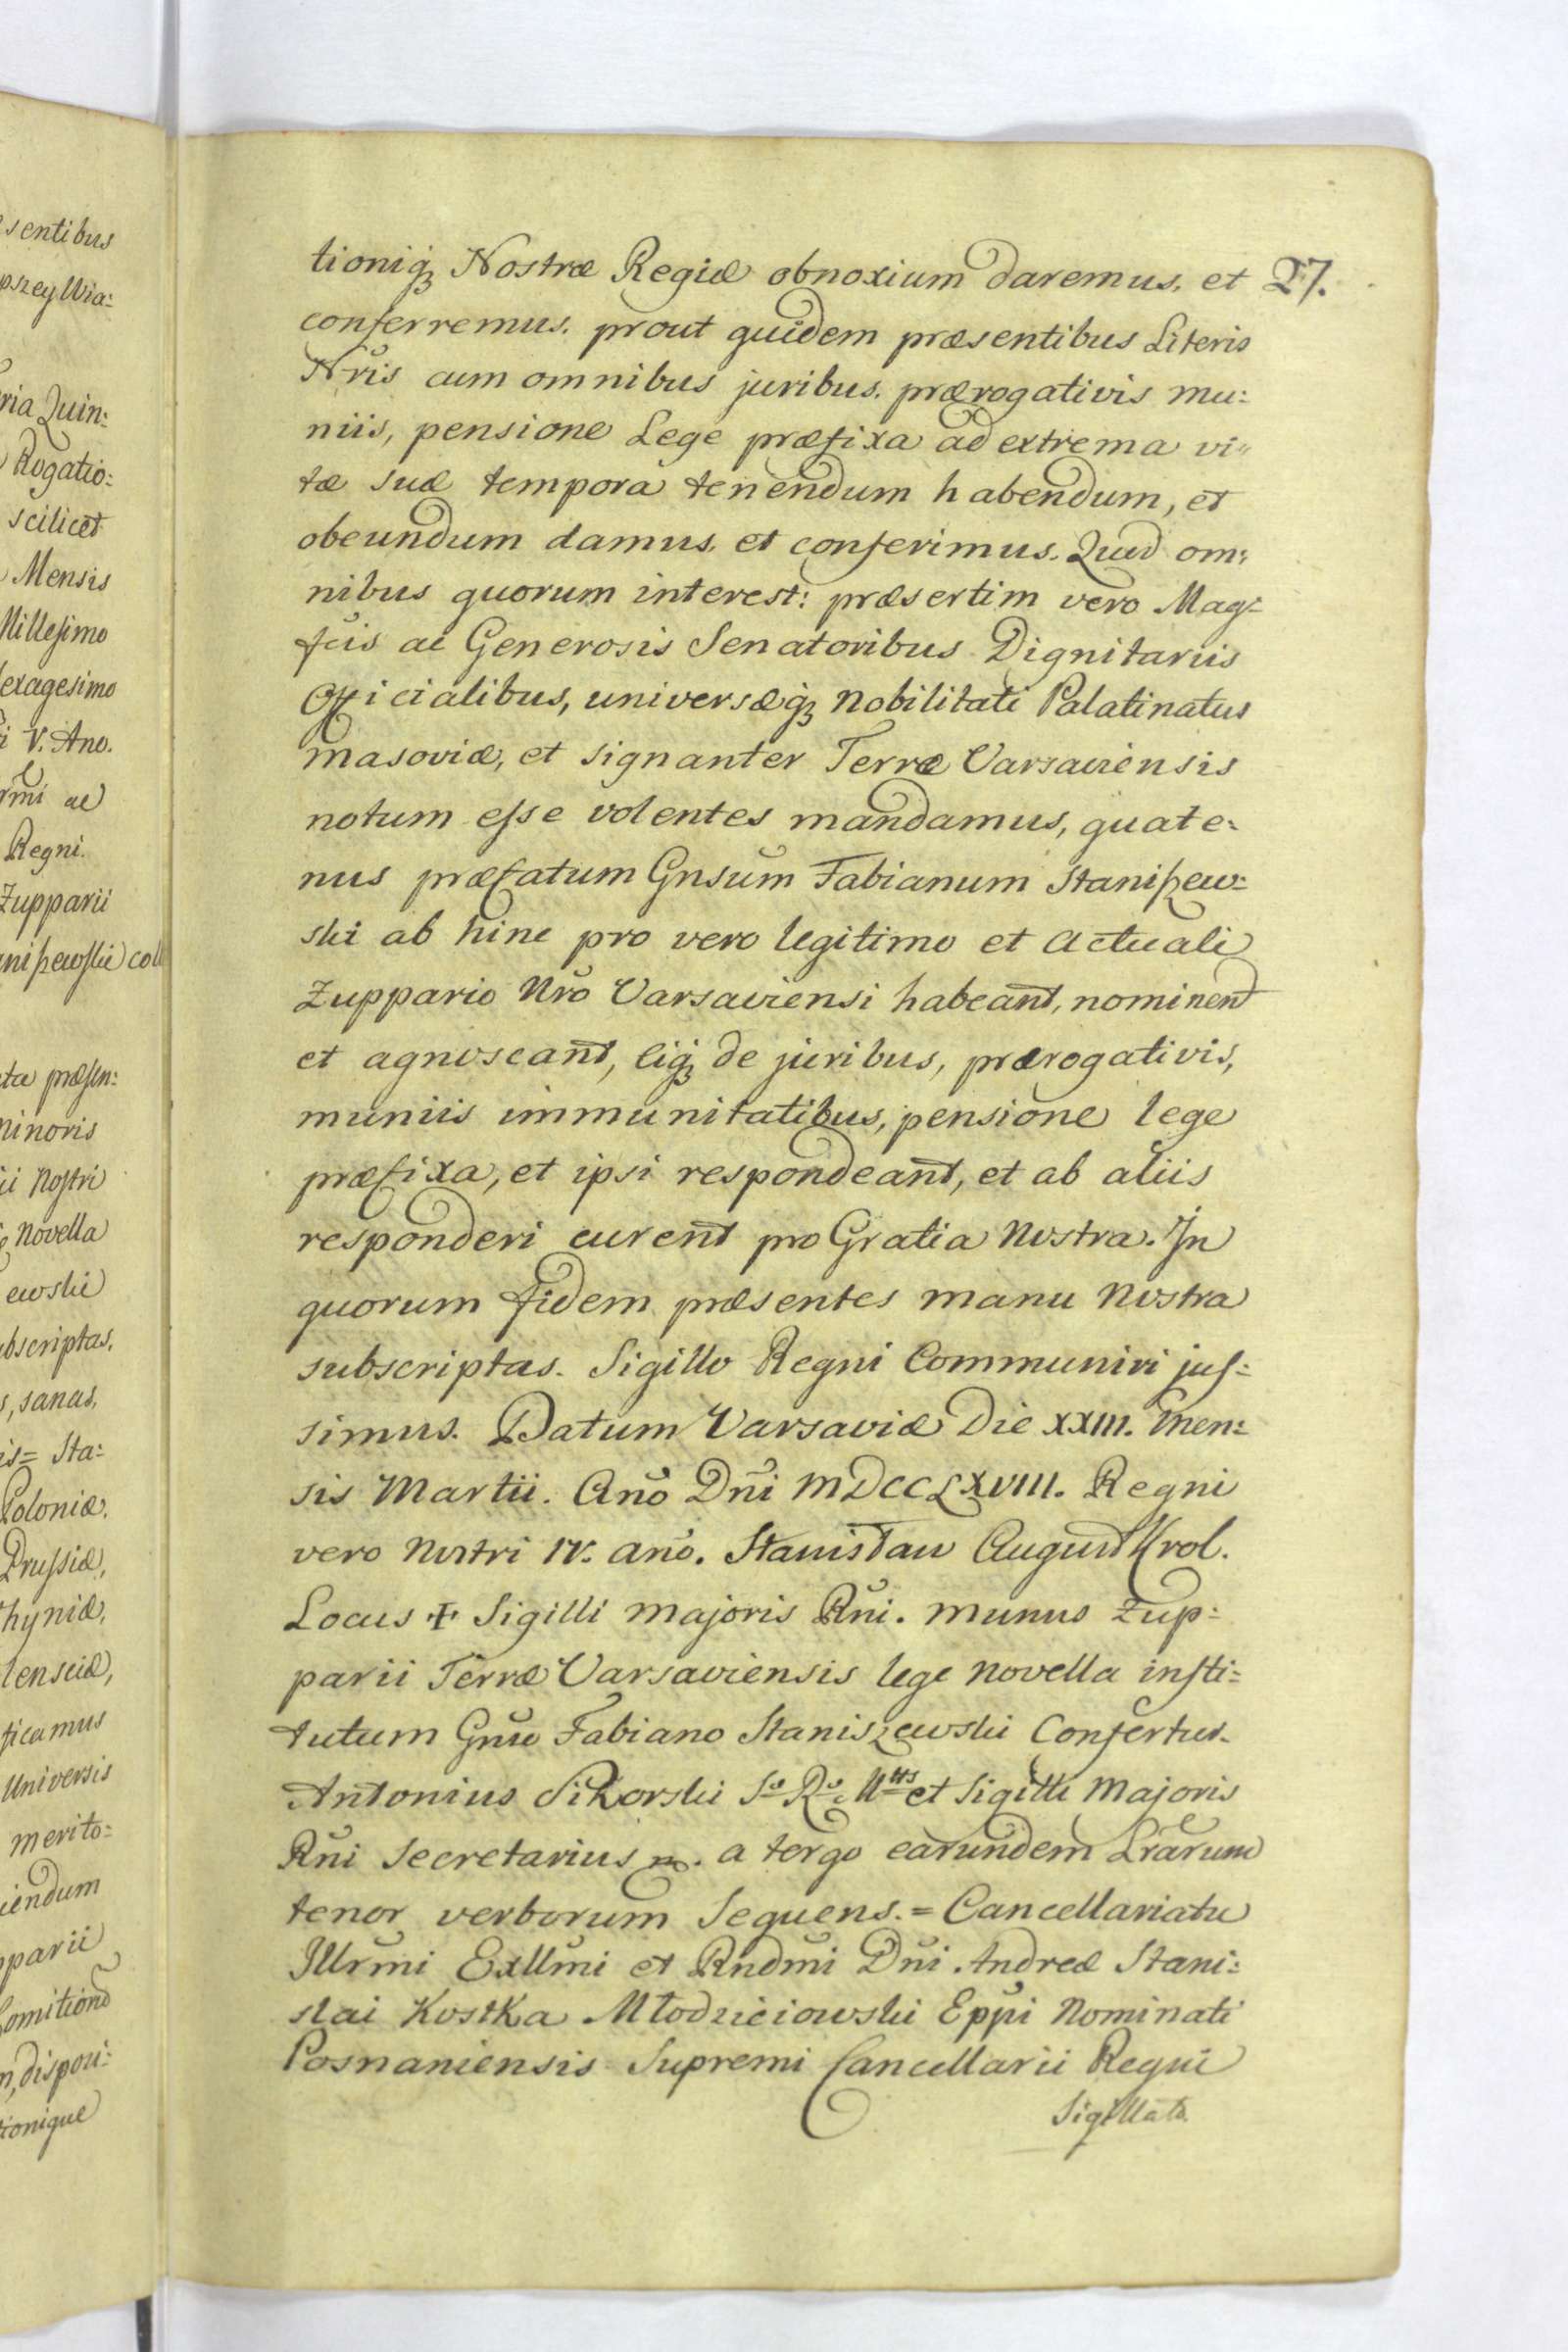 sentibus
pszey Wia:
ria Quin:
Rogatio:
scilicet
Mensis
Millesimo
exagesimo
i V. Ano.
rmi ac
Regni.
Zupparii
niszewski coll
ta præsen:
minoris
ii Nostri
Novella
ewski
bscriptas,
s, sanas,
is = Sta:
Poloniæ,
Prussiæ,
hyniæ,
lensciæ,
ficamus
Universis
merito:
iendum
pparii
Comitiond
n, disposi:
tionique
tioniq3 Nostræ Regiæ obnoxium daremus, et 27.
conferremus. prout quidem præsentibus Literis
Nris cum omnibus juribus, prærogativis mu:
niis, pensione Lege præfixa ad extrema vi"
tæ suæ tempora tenendum habendum, et
obeundum damus, et conferimus. Quod om:
nibus quorum interest: præsertim vero Mag:
fcis ac Generosis Senatoribus Dignitariis
Officialibus, universæq3 Nobilitati Palatinatus
Masoviæ, et signanter Terræ Varsaviensis
notum esse volentes mandamus, quate:
nus præfatum Gnsum Fabianum Staniszew:
ski ab hinc pro vero legitimo et actuali
Zuppario Nro Varsaviensi habeant, nominent
et agnoscant, eiq3 de juribus, prærogativis,
muniis immunitatibus, pensione lege
præfixa, et ipsi respondeant, et ab aliis
responderi curent pro Gratia Nostra. In
quorum fidem præsentes manu Nostra
subscriptas. Sigillo Regni Communiri jus:
simus. Datum Varsaviæ Die XXIII. Men:
sis Martii. Ano Dni MDCCLXVIII. Regni
vero Nostri IV. ano. Stanisław August Krol.
Locus ✝ Sigilli majoris Rni. Munus Zup:
parii Terræ Varsaviensis lege novella insti:
tutum Gnso Fabiano Staniszewski Confertur.
Antonius Sikorski S. R. Mttis et Sigilli Majoris
Rni Secretarius mp. a tergo earundem Lrarum
tenor verborum Sequens. = Cancellariatu
Illrmi Exllmi et Rndmi Dni Andreæ Stani:
slai Kostka Młodzieiowski Eppi Nominati
Posnaniensis Supremi Cancellarii Regni
Sigillata